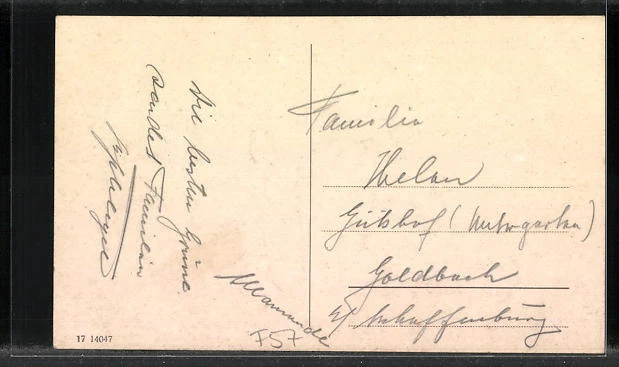 Die besten Grüße
sendet Familie
Familie
Gutshof (Untergarten)
Goldbach
b/ Aschaffenburg
F57
17 14047